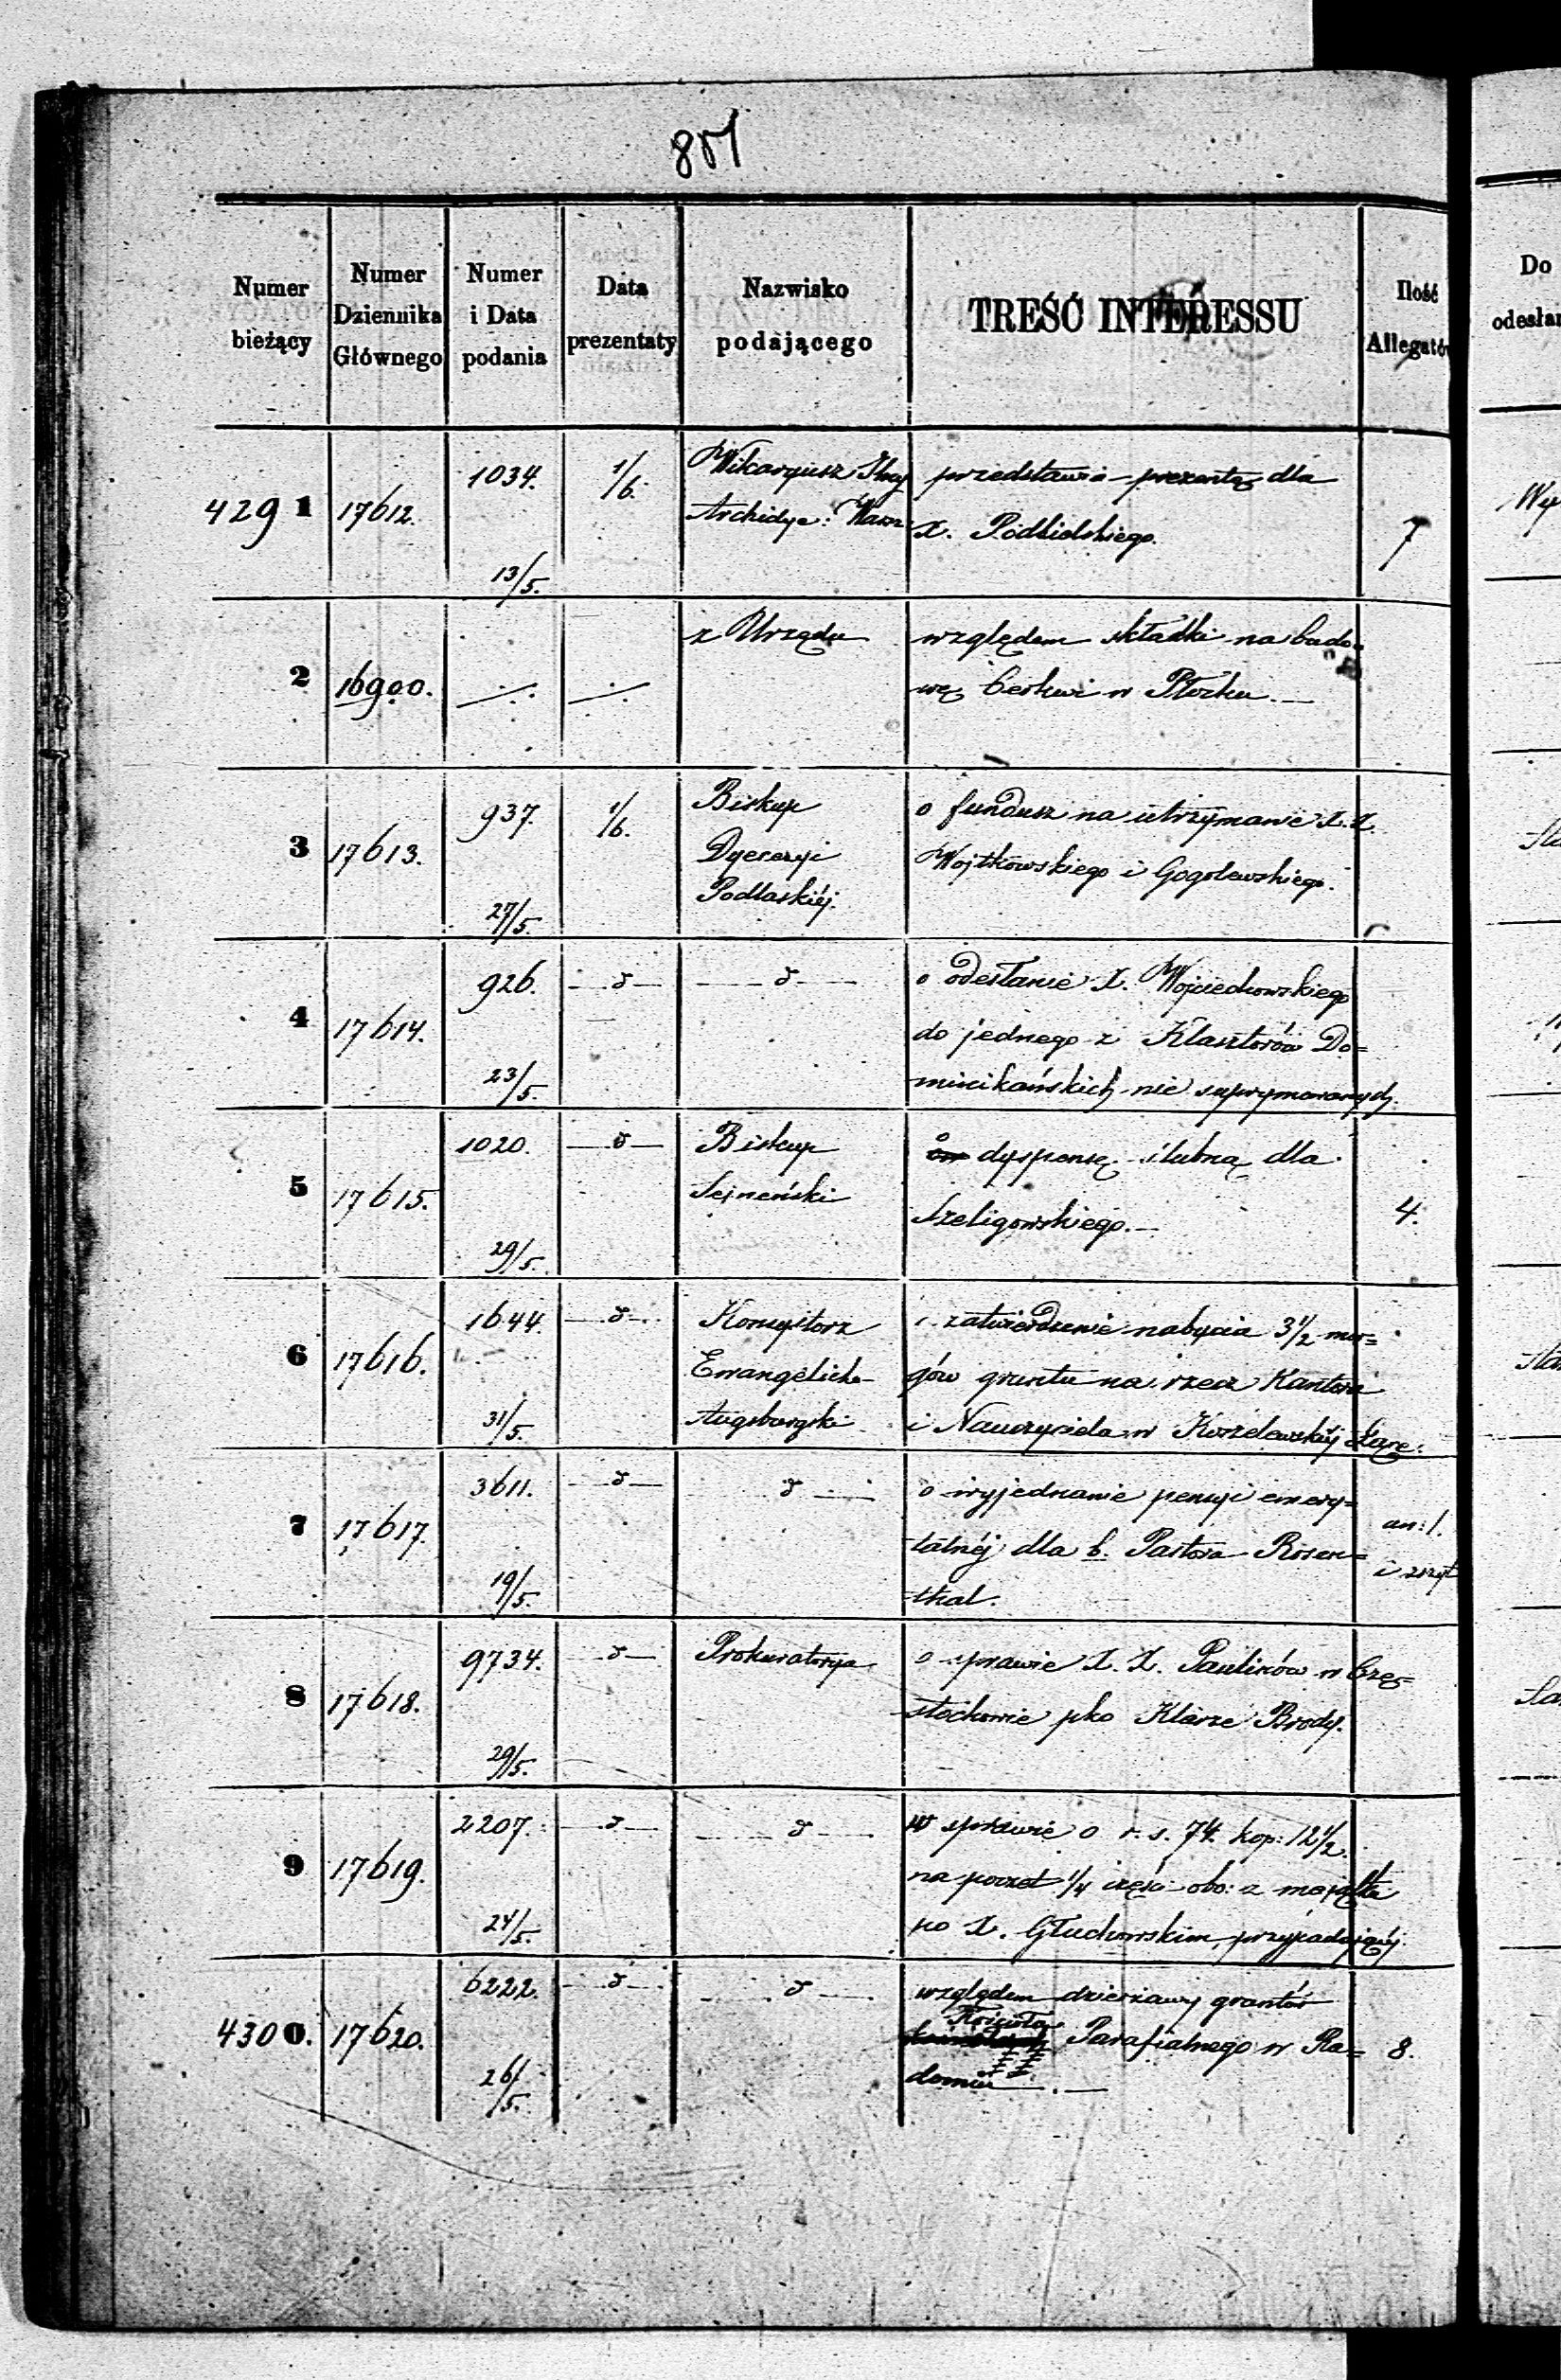 Numer bieżący
Numer Dziennika Głównego
Numer i Data podania
Data prezentaty
Nazwisko podającego
TREŚĆ INTERESSU
Ilość Allegatów
Do
odesłan
4291 17612. 1034. 13/5. 1/6.
Wikaryusz
Archidye: Warsz:
przedstawia prezentę dla
X. Podbielskiego.
7
2 16900. ./. ./.
z Urzędu
względem składki na budo-
wę Cerkwi w Płocku.
3 17613. 937. 27/5. 1/6.
Biskup
Dyecezyi
Podlaskiéj.
o fundusz na utrzymanie X.X.
Wojtkowskiego i Gogolewskiego.
4 17614. 926. 23/5. — d — — d —
o odesłanie X. Wojciechowskiego
do jednego z Klasztorów Do=
minikańskich nie suprymowanych.
5 17615. 1020. 29/5. — d —
Biskup
Sejneński
o dyspensę ślubną dla
Szeligowskiego.
4.
6 17616. 1644. 31/5. — d —
Konsystorz
Ewangelicko-
Augsburgski
zatwierdzenie nabycia 3 1/2 mor=
gów gruntu na rzecz Kantora
i Nauczyciela w
7 17617. 3611. 19/5. — d — — d —
o wyjednanie pensyi emery=
talnéj dla b. Pastora Rosen=
thal.
an: 1.
i
8 17618. 9734. 29/5. — d —
Prokuratorya
o sprawie X.X. Paulinów w Czę=
stochowie pko Klarze Brody.
9 17619. 2207. 24/5. — d — — d —
w sprawie o r.s. 74 kop: 12 1/2.
na poczet 1/4 części obo: z majątku
po X. Głuchowskim przypadającéj.
4300. 17620. 6222. 26/5. — d — — d —
względem dzierżawy gruntów
Kościoła
Parafialnego w Ra=
domiu.
8.